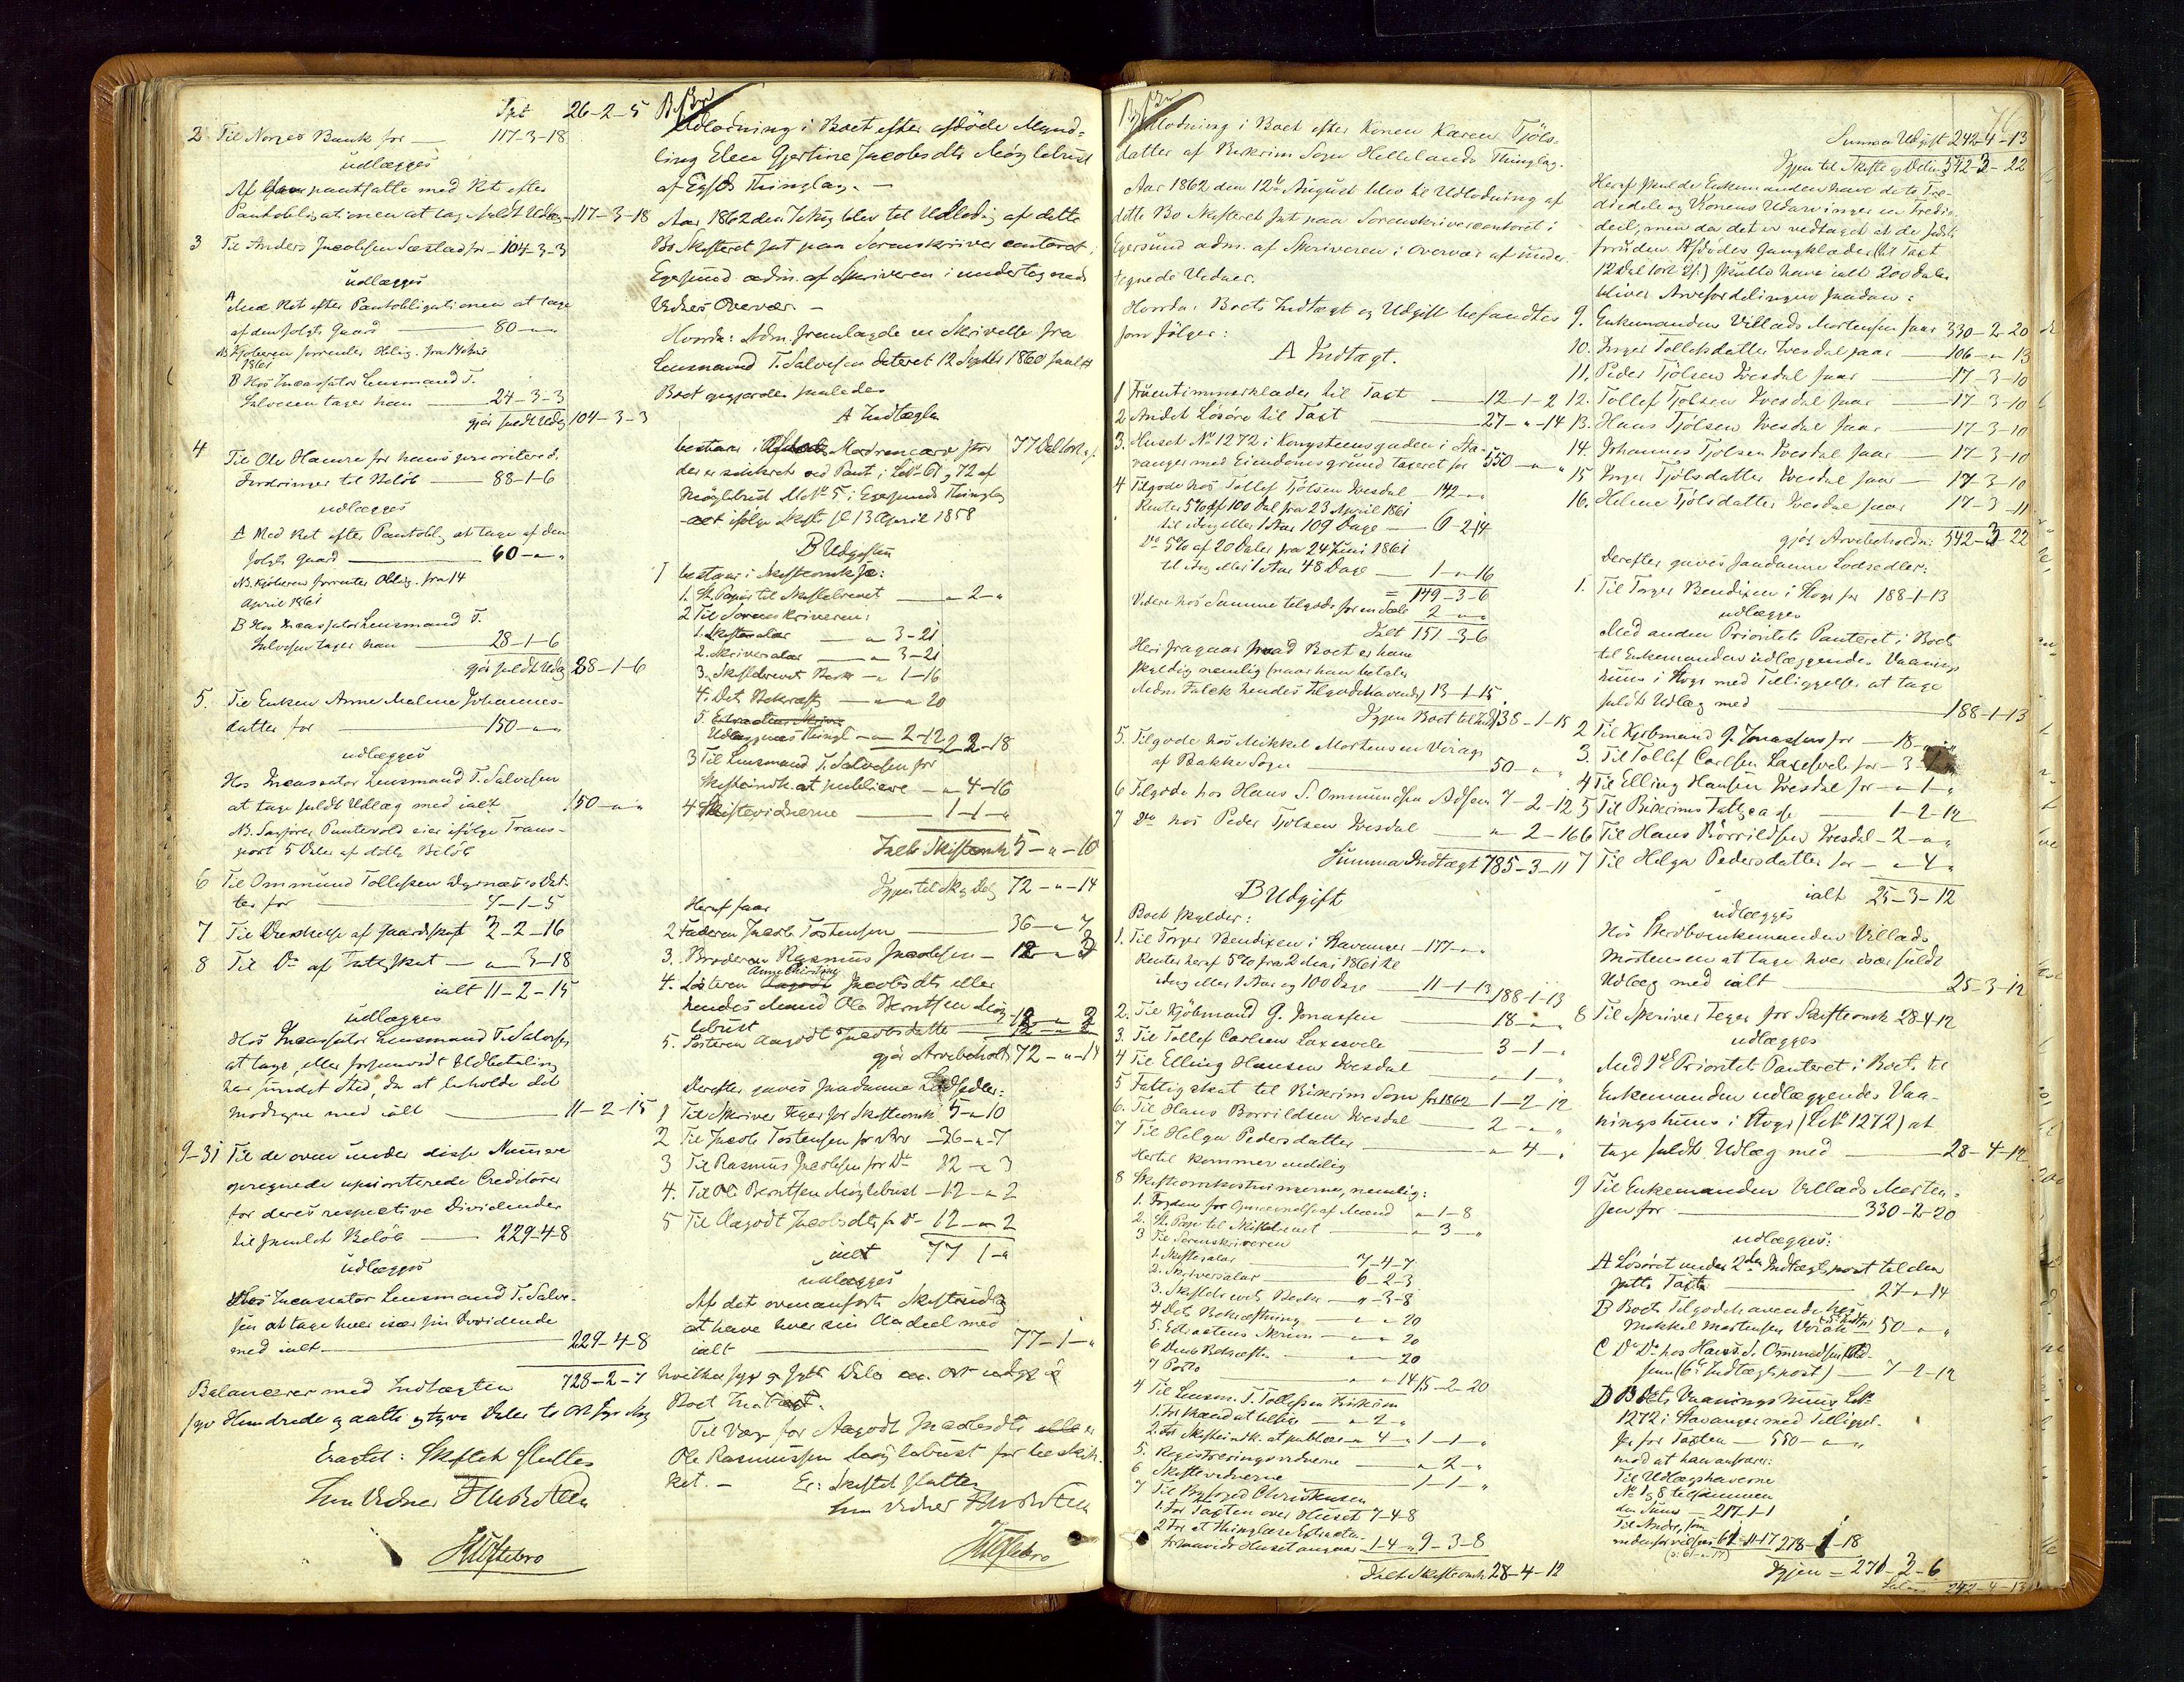 Tpt 26-2-5
2 Til Norges Bank for — 117-3-18
udlægges
pantsatte med Ret efter
Pantobligationen at tage fuldt Udlæg 117-3-18
3 Til Anders Jacobsen Sæstad for 104-3-3
udlægges
A Med Ret efter Pantobligationen at tage
af den solgte Gaard — 80-"-"
NB. Kjøberen forrenter Oblig. fra 14 April
1861
B Hos Incassator Lensmand T.
Salvesen tager han — 24-3-3
gjør fuldt Udlæg 104-3-3
4 Til Ole Hamre for hans prioriterede
Fordringer til Beløb — 88-1-6
udlægges
A Med Ret efter Pantobl. at tage af den
solgte Gaard — 60-"-"
NB. Kjøberen forrenter Oblig. fra 14
April 1861
B Hos Incassator Lensmand T.
Salvesen tager han — 28-1-6
gjør fuldt Udlæg 88-1-6
5. Til Enken Anne Malene Johannes-
datter for — 150-"-"
udlægges
Hos Incassator Lensmand T. Salvesen
at tage fuldt Udlæg med ialt 150-"-"
NB. Sagfører Puntervold eier ifølge Trans-
port 5 Daler af dette Beløb
6 Til Ommund Tollefsen Dat-
ter for — 4-1-5
7 Til af Gaardskat 2-2-16
8 Til Do af — "-3-18
ialt 11-2-15
udlægges
Hos Incassator Lensmand T. Salvesen
at tage, eller forsaavidt Udbetaling
har fundet Sted, da at beholde det
modtagne med ialt — 11-2-15
9-31 Til de oven under disse Numere
opregnede uprioriterede Creditorer
for deres respective Dividender
til samlet Beløb — 229-4-8
udlægges
Hos Incassator Lensmand T. Salve-
sen at tage hver især sin Dividende
med ialt — 229-4-8
Balancerer med Indtægten 728-2-7
syv Hundrede og aatte og tyve Daler to Ort syv Skg
Eragtet: Skiftet sluttes
Som Vidner

Udlodning i Boet efter afdøde Mynd-
ling Elen Gjertine Jacobsdtr Møglebust
af Egss Thinglag. —
Aar 1862 den 7 Aug blev til Udlodng af dette
Bo Skifteret sat paa Sorenskrivercontoret i
Egersund adm. af Skriveren i undertegnede
Vidners Overvær. —
Hvorda: Adm. fremlagde en Skrivelse fra
Lensmand T. Salvesen dateret 12 Septbr 1860
Boet opgjordes saaledes
A Indtægten
bestaar i Mødrenearv stor 77 Dal 1 ort "
der er sikkret ved Pant i LNo 61 og 72 af
Møglebust MNo 5 i Egersunds Thinglag
alt ifølge Skifte sl 13 April 1858
B Udgiften
1 bestaar i Skifteomk se:
1. St. Papir til Skiftebrevet — "-2-"
2 Til Sorenskriveren:
1. Skiftesalær — "-3-21
2. Skriversalær — "-3-21
3. Skiftebrevets Besk — "-1-16
4. Det Bekræft — "-"-20
5.
Udlæggenes Thingl — "-2-12 2-2-18
3 Til Lensmand T. Salvesen for
Skifteindk. at publicere — "-4-16
4 Skiftevidnerne — 1-1-"
Ialt Skifteomk 5-"-10
Igjen til Sk og Delg 72-"-14
Heraf faar
2 Faderen Jacob Tostensen — 36-"-7
3. Broderen Rasmus Jacobsen — 12-"-3
4. Søsteren Anne Christine Jacobsdtr eller
hendes Mand Ole Berntsen Møg-
lebust — 12-"-2
5. Søsteren Aagodt Jacobsdatter — 12-"-2
gjør Arvebeholdn 72-"-14
Derefter gaves saadanne Lodsedler:
1 Til Skriver Feyer for Skifteomk 5-"-10
2 Til Jacob Tostensen for Arv 36-"-7
3 Til Rasmus Jacobsen for Do 12-"-3
4. Til Ole Berntsen Møglebust — 12-"-2
5 Til Aagodt Jacobsdtr for Do 12-"-2
ialt 77 1-"
udlægges
Af det ovenanførte
at have hver sin Andeel med
ialt — 77-1-"
hvilket syv og sytti Daler en Ort udgjør
Boet Indtægt.
Til Værge for Aagodt Jacobsdtr er
Ole Rasmussen Møglebust
ket. — Er: Skiftet sluttes
Som Vidner

76
Udlodning i Boet efter Konen Karen Tjøls-
datter af Birkrim Sogn Hellelands Thinglag.
Aar 1862 den 12te August blev til Udlodning af
dette Bo Skifteret sat paa Sorenskrivercontoret i
Egersund adm. af Skriveren i Overvær af under-
tegnede Vidner.
Hvorda: Boets Indtægt og Udgift befandtes
som følger:
A Indtægt.
1 Fruentimmerklæder til Taxt — 12-1-2
2 Andet Løsøre til Taxt — 27-"-14
3. Huset No 1272 i Kongsteensgaden i Sta-
vanger med Eiendomsgrund taxeret for 550-"-"
4 Tilgode hos Tollef Tjølsen Ivesdal 142-"-"
Renter 5% af 100 Dal fra 23 April 1861
til idag eller 1 Aar 109 Dage — 6-2-14
Do 5% af 20 Daler fra 24 Juni 1861
til idag eller 1 Aar 48 Dage — 1-"-16
= 149-3-6
Videre hos Samme tilgode for en Sæl 2-"-"
Ialt 151-3-6
Heri fragaar hvad Boet er ham
skyldig nemlig (naar han betaler
Mdm Falck hendes Tilgodehavende) 13-1-15
Igjen Boet tilgode 138-1-15
5. Tilgode hos Mikkel Mortensen Virag
af Bakke Sogn — 50-"-"
6 Tilgode hos Hans S. Ommundsen Adsen 7-2-12
7 Do hos Peder Tjølsen Ivesdal — "-2-16
Summa Indtægt 785-3-11
B Udgift
Boet skylder:
1. Til Torger Bendixen i Stavanger — 177-"-"
Renter heraf 5% fra 2 Mai 1861 til
idag eller 1 Aar og 100 Dage — 11-1-13 188-1-13
2. Til Kjøbmand G. Jonassen — 18-"-"
3. Til Tollef Carlsen Laxesvele — 3-1-"
4 Til Elling Hansen Ivesdal — "-1-"
5 Fattigskat til Birkrim Sogn for 1862 — 1-2-12
6. Til Hans Børrildsen Ivesdal — 2-"-"
7 Til Helga Pedersdatter — "-4-"
Hertil kommer endelig
8 Skifteomkostningerne, nemlig:
1. Fogden for af Mænd "-1-8
2. St. Papir til Skiftebrevet — "-3-"
3 Til Sorenskriveren
1. Skiftesalær — 7-4-7
2. Skriversalær — 6-2-3
3. Skiftebrevets Beskr — "-3-8
4 Dets Bekræftning — "-"-20
5. Extractens Skrivn — "-"-20
6 Dens Bekræftn — "-"-20
7 Porto — "-"-14 15-2-20
4 Til Lensm. T. Tollefsen Birkrim
1. for Mænd at tilsige — "-2-"
2. for Skifteindk. at publicere "-4-" 1-1-"
5. Registreringsvidnerne — "-2-"
6 Skiftevidnerne — 1-1-"
7 Til Byfoged Christensen
1. For Taxten over Huset 7-4-8
2 For at thinglæse Extracten
forsaavidt Huset angaar 1-4-" 9-3-8
Ialt Skifteomk 28-4-12

Summa Udgift 242-4-13
Igjen til Skifte og Deling 542-3-22
Heraf skulde Enkemanden have de to Tre-
diedele og Konens Udarvinger en Tredie-
deel, men da det er vedtaget at de sidste
foruden Afdødes Gangklæder (til Taxt
12 Dal 1 ort 2 s.) skulle have ialt 200 Daler
bliver Arvefordelingen saadan:
9. Enkemanden Villads Mortensen faar 330-2-20
10. Inger Tollefsdatter Ivesdal faar — 106-"-13
11. Peder Tjølsen Ivesdal faar — 17-3-10
12. Tollef Tjølsen Ivesdal faar — 17-3-10
13. Hans Tjølsen Ivesdal faar — 17-3-10
14. Johannes Tjølsen Ivesdal faar — 17-3-10
15 Inger Tjølsdatter Ivesdal faar — 17-3-10
16. Helene Tjølsdatter Ivesdal faar 17-3-11
gjør Arvebeholdn: 542-3-22
Derefter gaves saadanne Lodsedler:
1. Til Torger Bendixen i Stvgr for 188-1-13
udlægges
Med anden Prioritets Panteret i Boets
til Enkemanden udlæggendes Vaanings
huus i Stvgr med Tilliggelser at tage
fuldt Udlæg med — 188-1-13
2 Til Kjøbmand G. Jonassen for — 18-"-"
3. Til Tollef Carlsen Laxesvele for — 3-1-"
4 Til Elling Hansen Ivesdal for — "-1-"
5 Til Birkrims Fattigcasse — 1-2-12
6 Til Hans Børrildsen Ivesdal — 2-"-"
7 Til Helga Pedersdatter for — "-4-"
ialt 25-3-12
udlægges
Hos Sterbboenkemanden Villads
Mortensen at tage hver især fuldt
Udlæg med ialt — 25-3-12
8 Til Skriver Feyer for Skifteomk 28-4-12
udlægges
Med 1ste Prioritets Panteret i Boets til
Enkemanden udlæggendes Vaa-
ningshuus i Stvgr (LNo 1272) at
tage fuldt Udlæg med — 28-4-12
9 Til Enkemanden Villads Morten-
sen for — 330-2-20
udlægges:
A Løsøret under 2den Indtægtspost til den
satte Taxt — 27-"-14
B Boets Tilgodehavende hos
Mikkel Mortensen Virak 50-"-"
C Do Do hos Hans S. Ommundsen Ad-
sen (6te Indtægtspost) — 7-2-12
D Boets Vaaningshuus LNo
1272 i Stavanger med Tilligel-
se for Taxten — 550-"-"
mod at han ansvarer:
Til Udlægshaverne
No 1 og 8 tilsammen
den Sum — 217-1-1
Til Andre, som
nedenfor 61-"-17 278-1-18
(: 61-"-17)
Igjen = 271-3-6
242-4-13